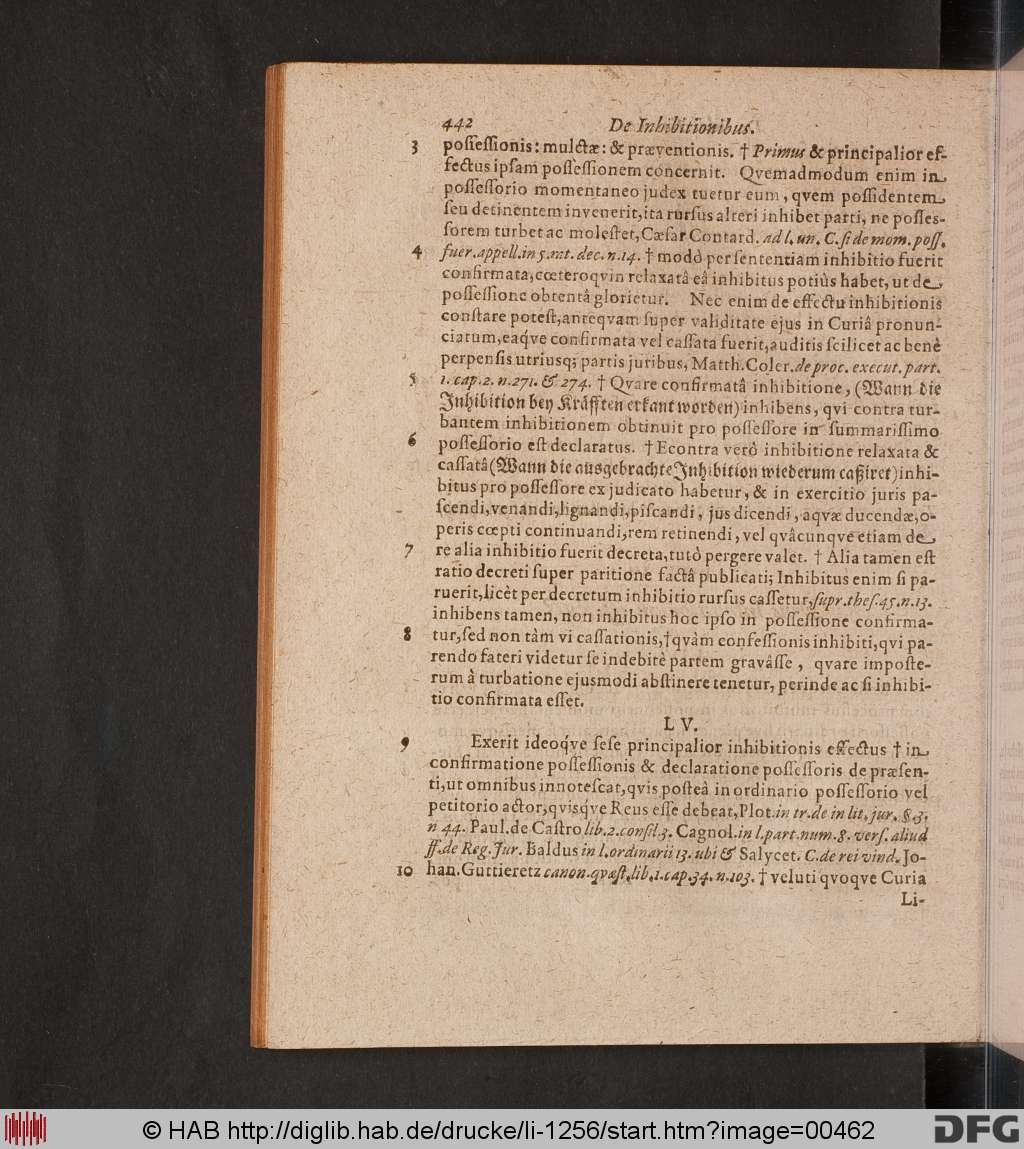 442 De Inhibitionibus.
3 possessionis: mulctæ: & præventionis. † Primus & principalior ef-
fectus ipsam possessionem concernit. Qvemadmodum enim in
possessorio momentaneo judex tuetur eum, qvem possidentem
seu detinentem invenerit, ita rursus alteri inhibet parti, ne posses-
sorem turbet ac molestet, Cæsar Contard. ad l. un. C. si de mom. poss.
4 fuer. appell. in 5. mt. dec. n. 14. † modò per sententiam inhibitio fuerit
confirmata, cœteroqvin relaxatâ eâ inhibitus potiùs habet, ut de
possessione obtentâ glorietur. Nec enim de effectu inhibitionis
constare potest, anteqvam super validitate ejus in Curiâ pronun-
ciatum, eaq́ve confirmata vel cassata fuerit, auditis scilicet ac benè
perpensis utriusq; partis juribus, Matth. Coler. de proc. execut. part.
5 1. cap. 2. n. 271. & 274. † Qvare confirmatâ inhibitione, (Wann die
Inhibition bey Kräfften erkant worden) inhibens, qvi contra tur-
bantem inhibitionem obtinuit pro possessore in summarissimo
6 possessorio est declaratus. † Econtra verò inhibitione relaxata &
cassatâ (Wann die ausgebrachte Inhibition wiederum caßiret) inhi-
bitus pro possessore ex judicato habetur, & in exercitio juris pa-
scendi, venandi, lignandi, piscandi, jus dicendi, aqvæ ducendæ, o-
peris cœpti continuandi, rem retinendi, vel qvâcunqve etiam de
7 re alia inhibitio fuerit decreta, tutò pergere valet. † Alia tamen est
ratio decreti super paritione factâ publicati; Inhibitus enim si pa-
ruerit, licèt per decretum inhibitio rursus cassetur, supr. thes. 45. n. 13.
inhibens tamen, non inhibitus hoc ipso in possessione confirma-
8 tur, sed non tàm vi cassationis, † qvàm confessionis inhibiti, qvi pa-
rendo fateri videtur se indebitè partem gravâsse, qvare imposte-
rum à turbatione ejusmodi abstinere tenetur, perinde ac si inhibi-
tio confirmata esset.
LV.
9 Exerit ideoq́ve sese principalior inhibitionis effectus † in
confirmatione possessionis & declaratione possessoris de præsen-
ti, ut omnibus innotescat, qvis posteà in ordinario possessorio vel
petitorio actor, qvisq́ve Reus esse debeat, Plot. in tr. de in lit. jur. §. 3.
n 44. Paul. de Castro lib. 2. consil. 3. Cagnol. in l. part. num. 8. vers. aliud
ff. de Reg. Jur. Baldus in l. ordinarii 13. ubi & Salycet. C. de rei vind. Jo-
10 han. Guttieretz canon. qvæst. lib. 1. cap. 34. n. 103. † veluti qvoqve Curia
Li-
© HAB http://diglib.hab.de/drucke/li-1256/start.htm?image=00462
DFG